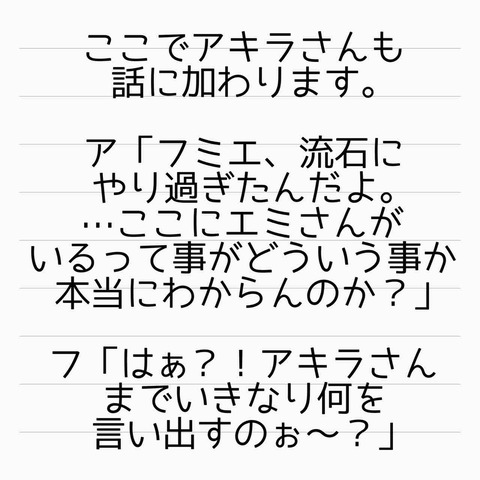 ここでアキラさんも
話に加わります。
ア「フミエ、流石に
やり過ぎたんだよ。
…ここにエミさんが
いるって事がどういう事か
本当にわからんのか？」
フ「はぁ？！アキラさん
までいきなり何を
言い出すのぉ〜？」